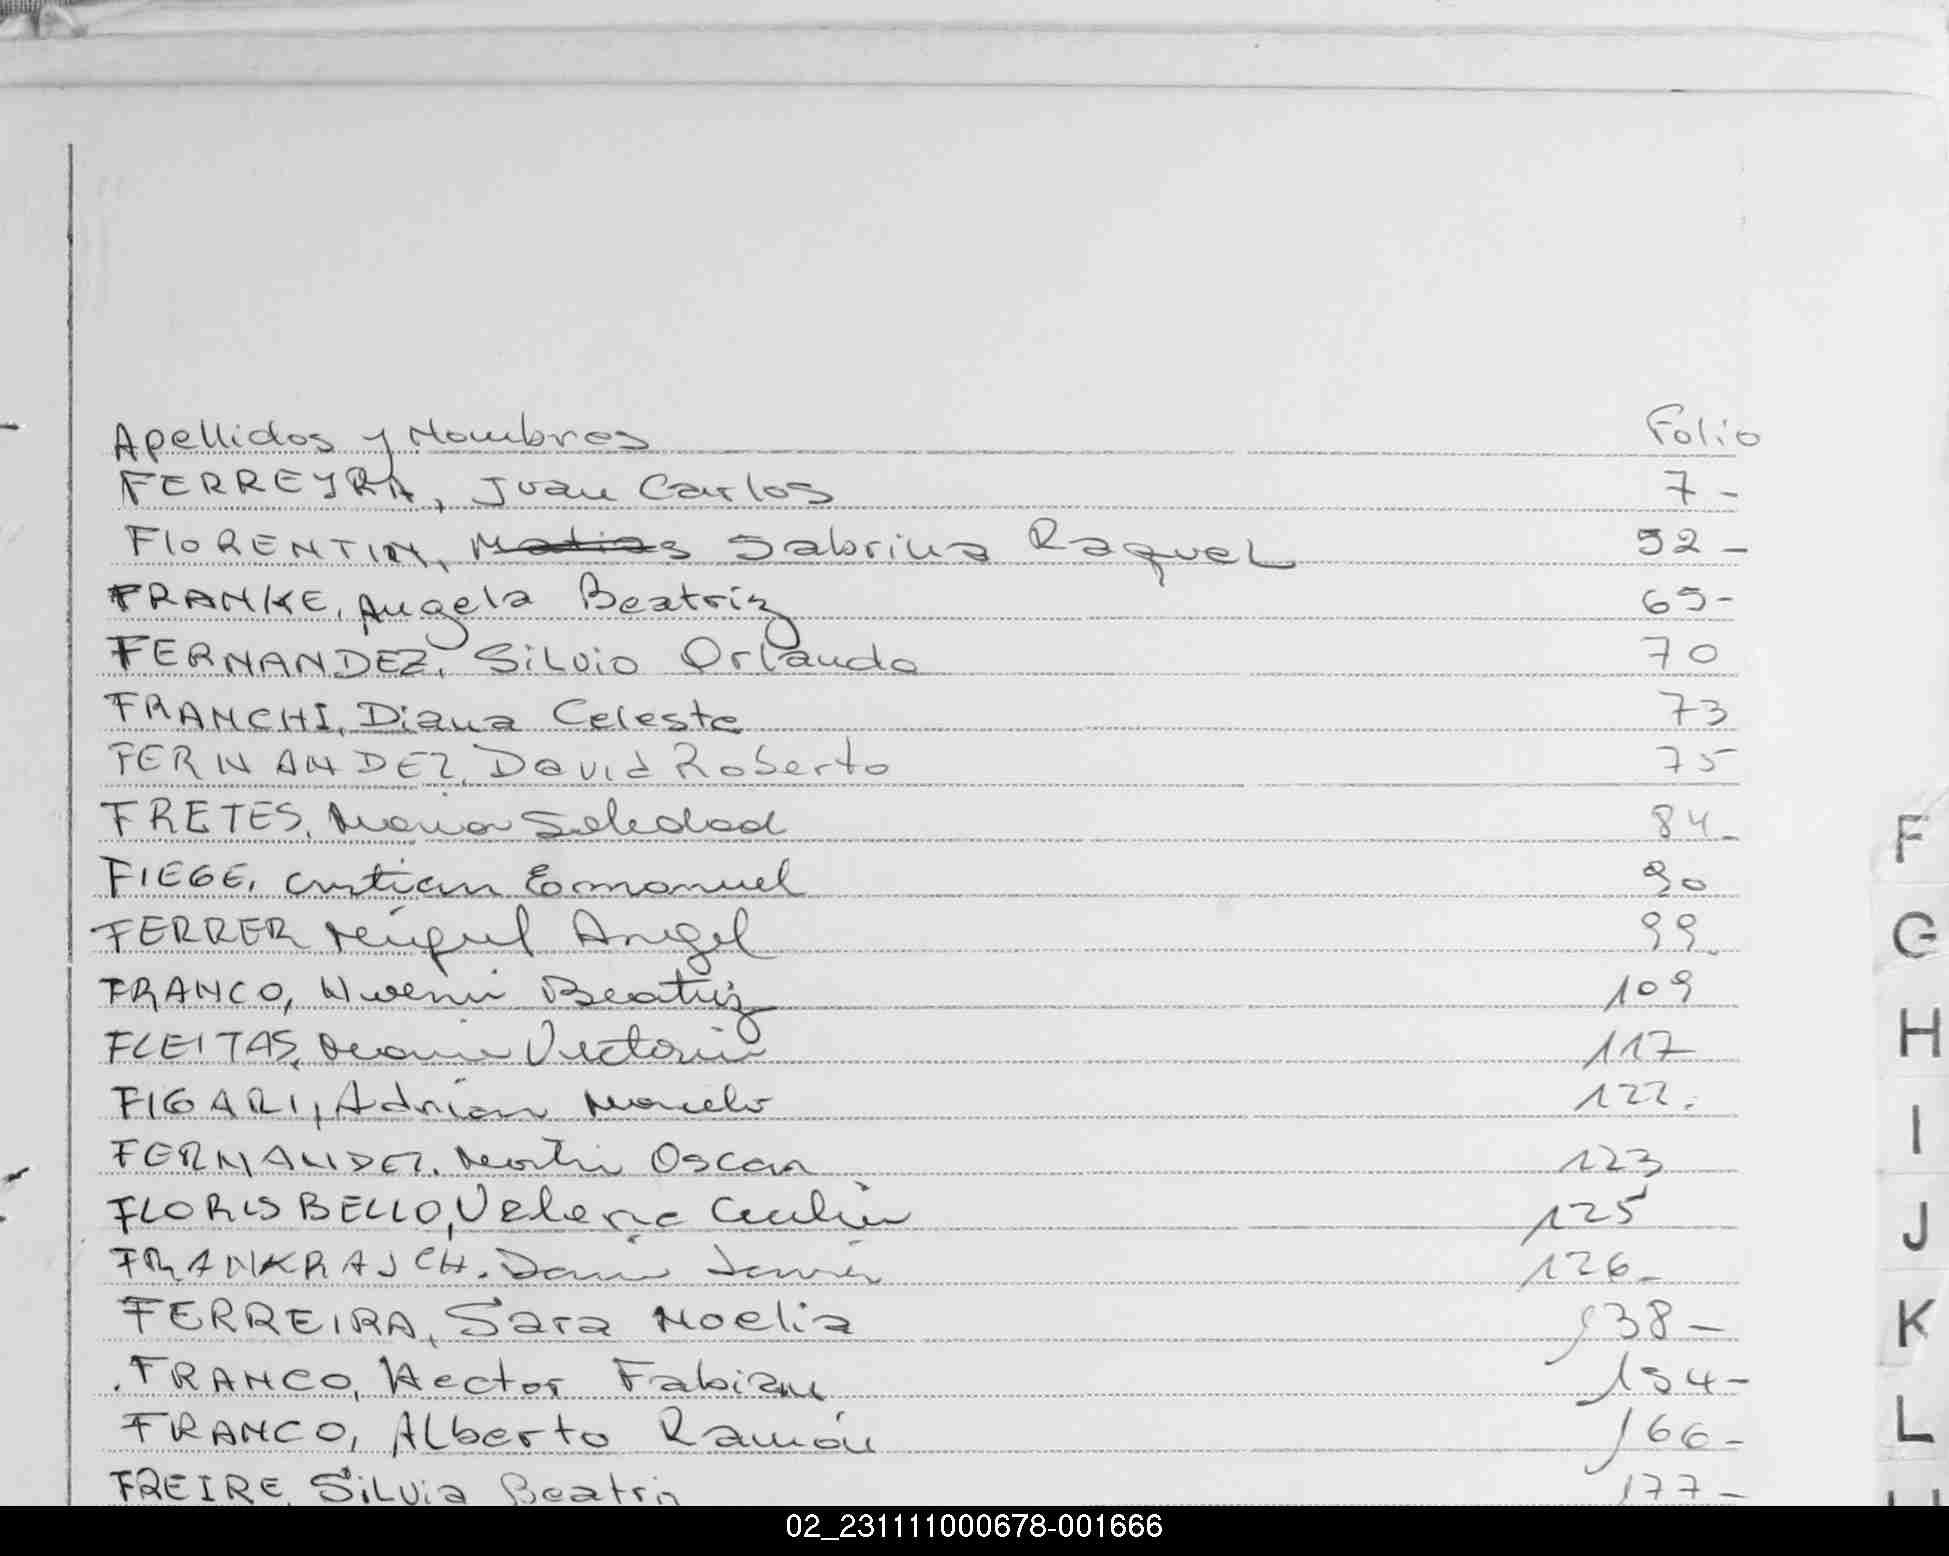 Apellidos y Nombres Folio
FERREYRA, Juan Carlos 7-
FlORENTIN, Matias Sabrina Raquel 52-
FRANKE, Angela Beatriz 65-
FERNANDEZ, Silvio Orlando 70
FRANCHI, Diana Celeste 73
FERNANDEZ, David Roberto 75
FRETES, Maria Soledad 84-
FIEGE, Cristian Emmanuel 90
FERRER Miguel Angel 99
FRANCO, Beatriz 109
FLEITAS, Maria Victoria 117
FIGARI, Adrian Marcelo 122.
FERNANDEZ, Martin Oscar 123
FLORIS BELLO, Valeria Cecilia 125
FRANKRAJCH. Javier 126-
FERREIRA, Sara Noelia 138-
FRANCO, Hector Fabian 154-
FRANCO, Alberto Ramón 166-
FREIRE, Silvia Beatriz 177-
F
G
H
I
J
K
L
02_231111000678-001666